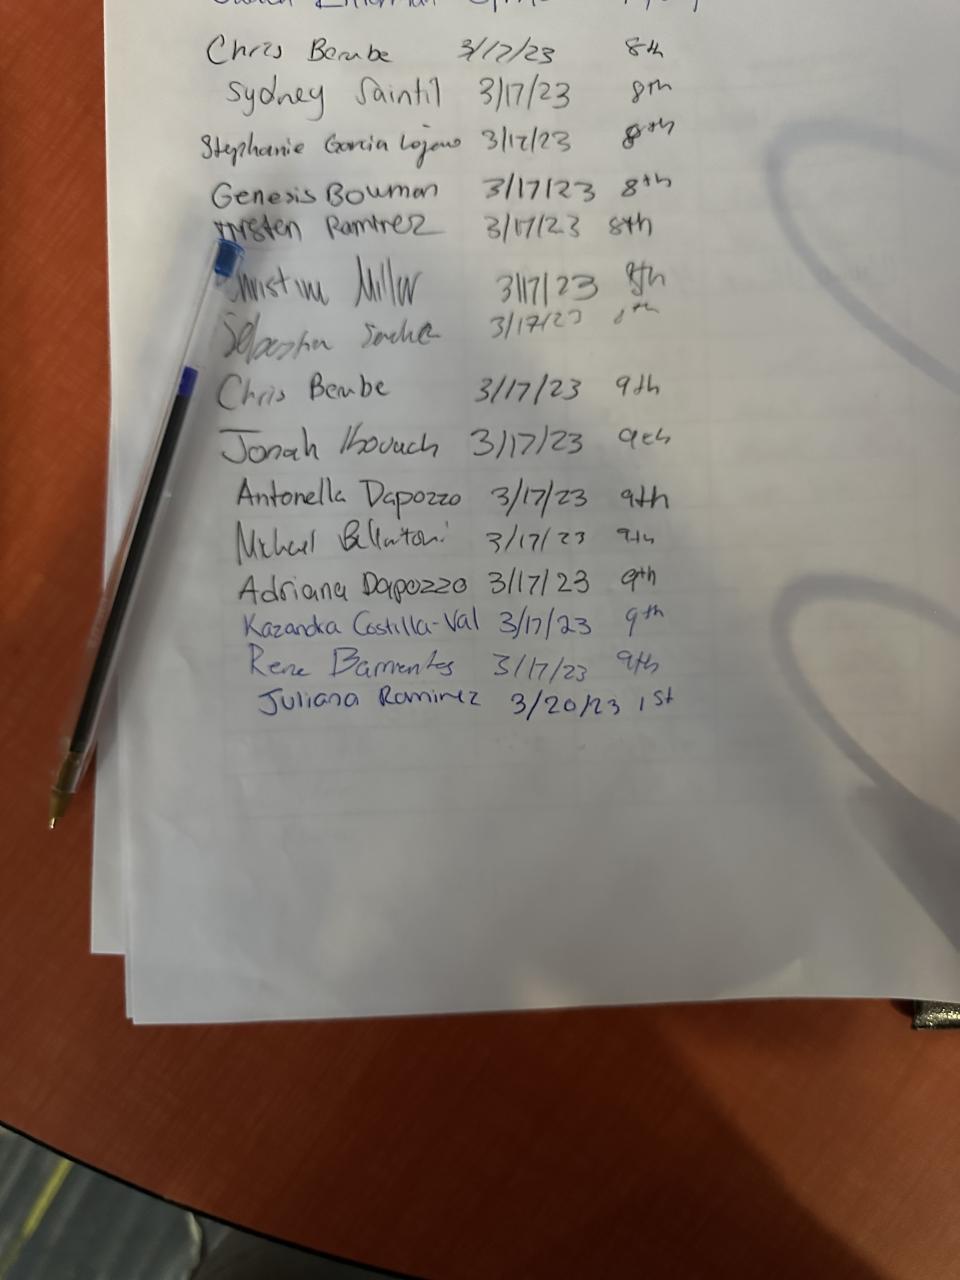 Chris Bembe 3/17/23 8th
Sydney Saintil 3/17/23 8th
Stephanie Garcia 3/17/23 8th
Genesis Bowman 3/17/23 8th
Ramirez 3/17/23 8th
Miller 3/17/23 8th
3/17/23
Chris Bembe 3/17/23 9th
Jonah 3/17/23 9th
Antonella Dapozzo 3/17/23 9th
Michael 3/17/23 9th
Adriana Dapozzo 3/17/23 9th
Kazandra Costilla-Val 3/17/23 9th
Rene Barrientes 3/17/23 9th
Juliana Ramirez 3/20/23 1st